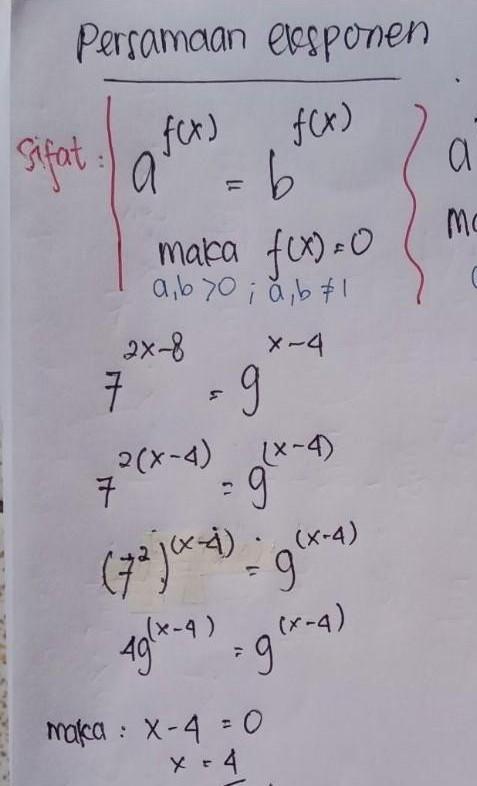 Persamaan eksponen
Sifat : a^f(x) = b^f(x) a
maka f(x) = 0
a,b >0 ; a,b ≠ 1
7^2x-8 = 9^x-4
7^2(x-4) = 9^(x-4)
(7^2)^(x-4) = 9^(x-4)
49^(x-4) = 9^(x-4)
maka : x-4 = 0
x = 4